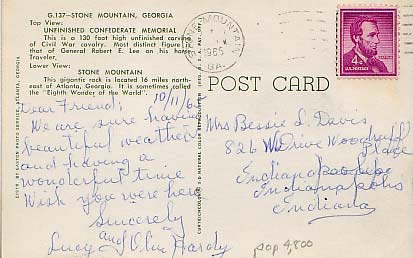 G.137—STONE MOUNTAIN, GEORGIA
Top View:
UNFINISHED CONFEDERATE MEMORIAL
This is a 130 foot high unfinished carving
of Civil War cavalry. Most distinct figure is
that of General Robert E. Lee on his horse
Traveler.
Lower View:
STONE MOUNTAIN
This gigantic rock is located 16 miles north-
east of Atlanta, Georgia. It is sometimes called
the "Eighth Wonder of the World".
Dear Friend: 10/11/65
We are sure having
beautiful weather
and having a
wonderful time
Wish you were here
Sincerely
Lucy and Olin Hardy
STONE MOUNTAIN
1965
GA.
4¢
U.S. POSTAGE
POST CARD
Mrs Bessie L. Davis
826 W Drive Woodruff
Place
Indianapolis
Indianapolis
Indiana
pop 4,800